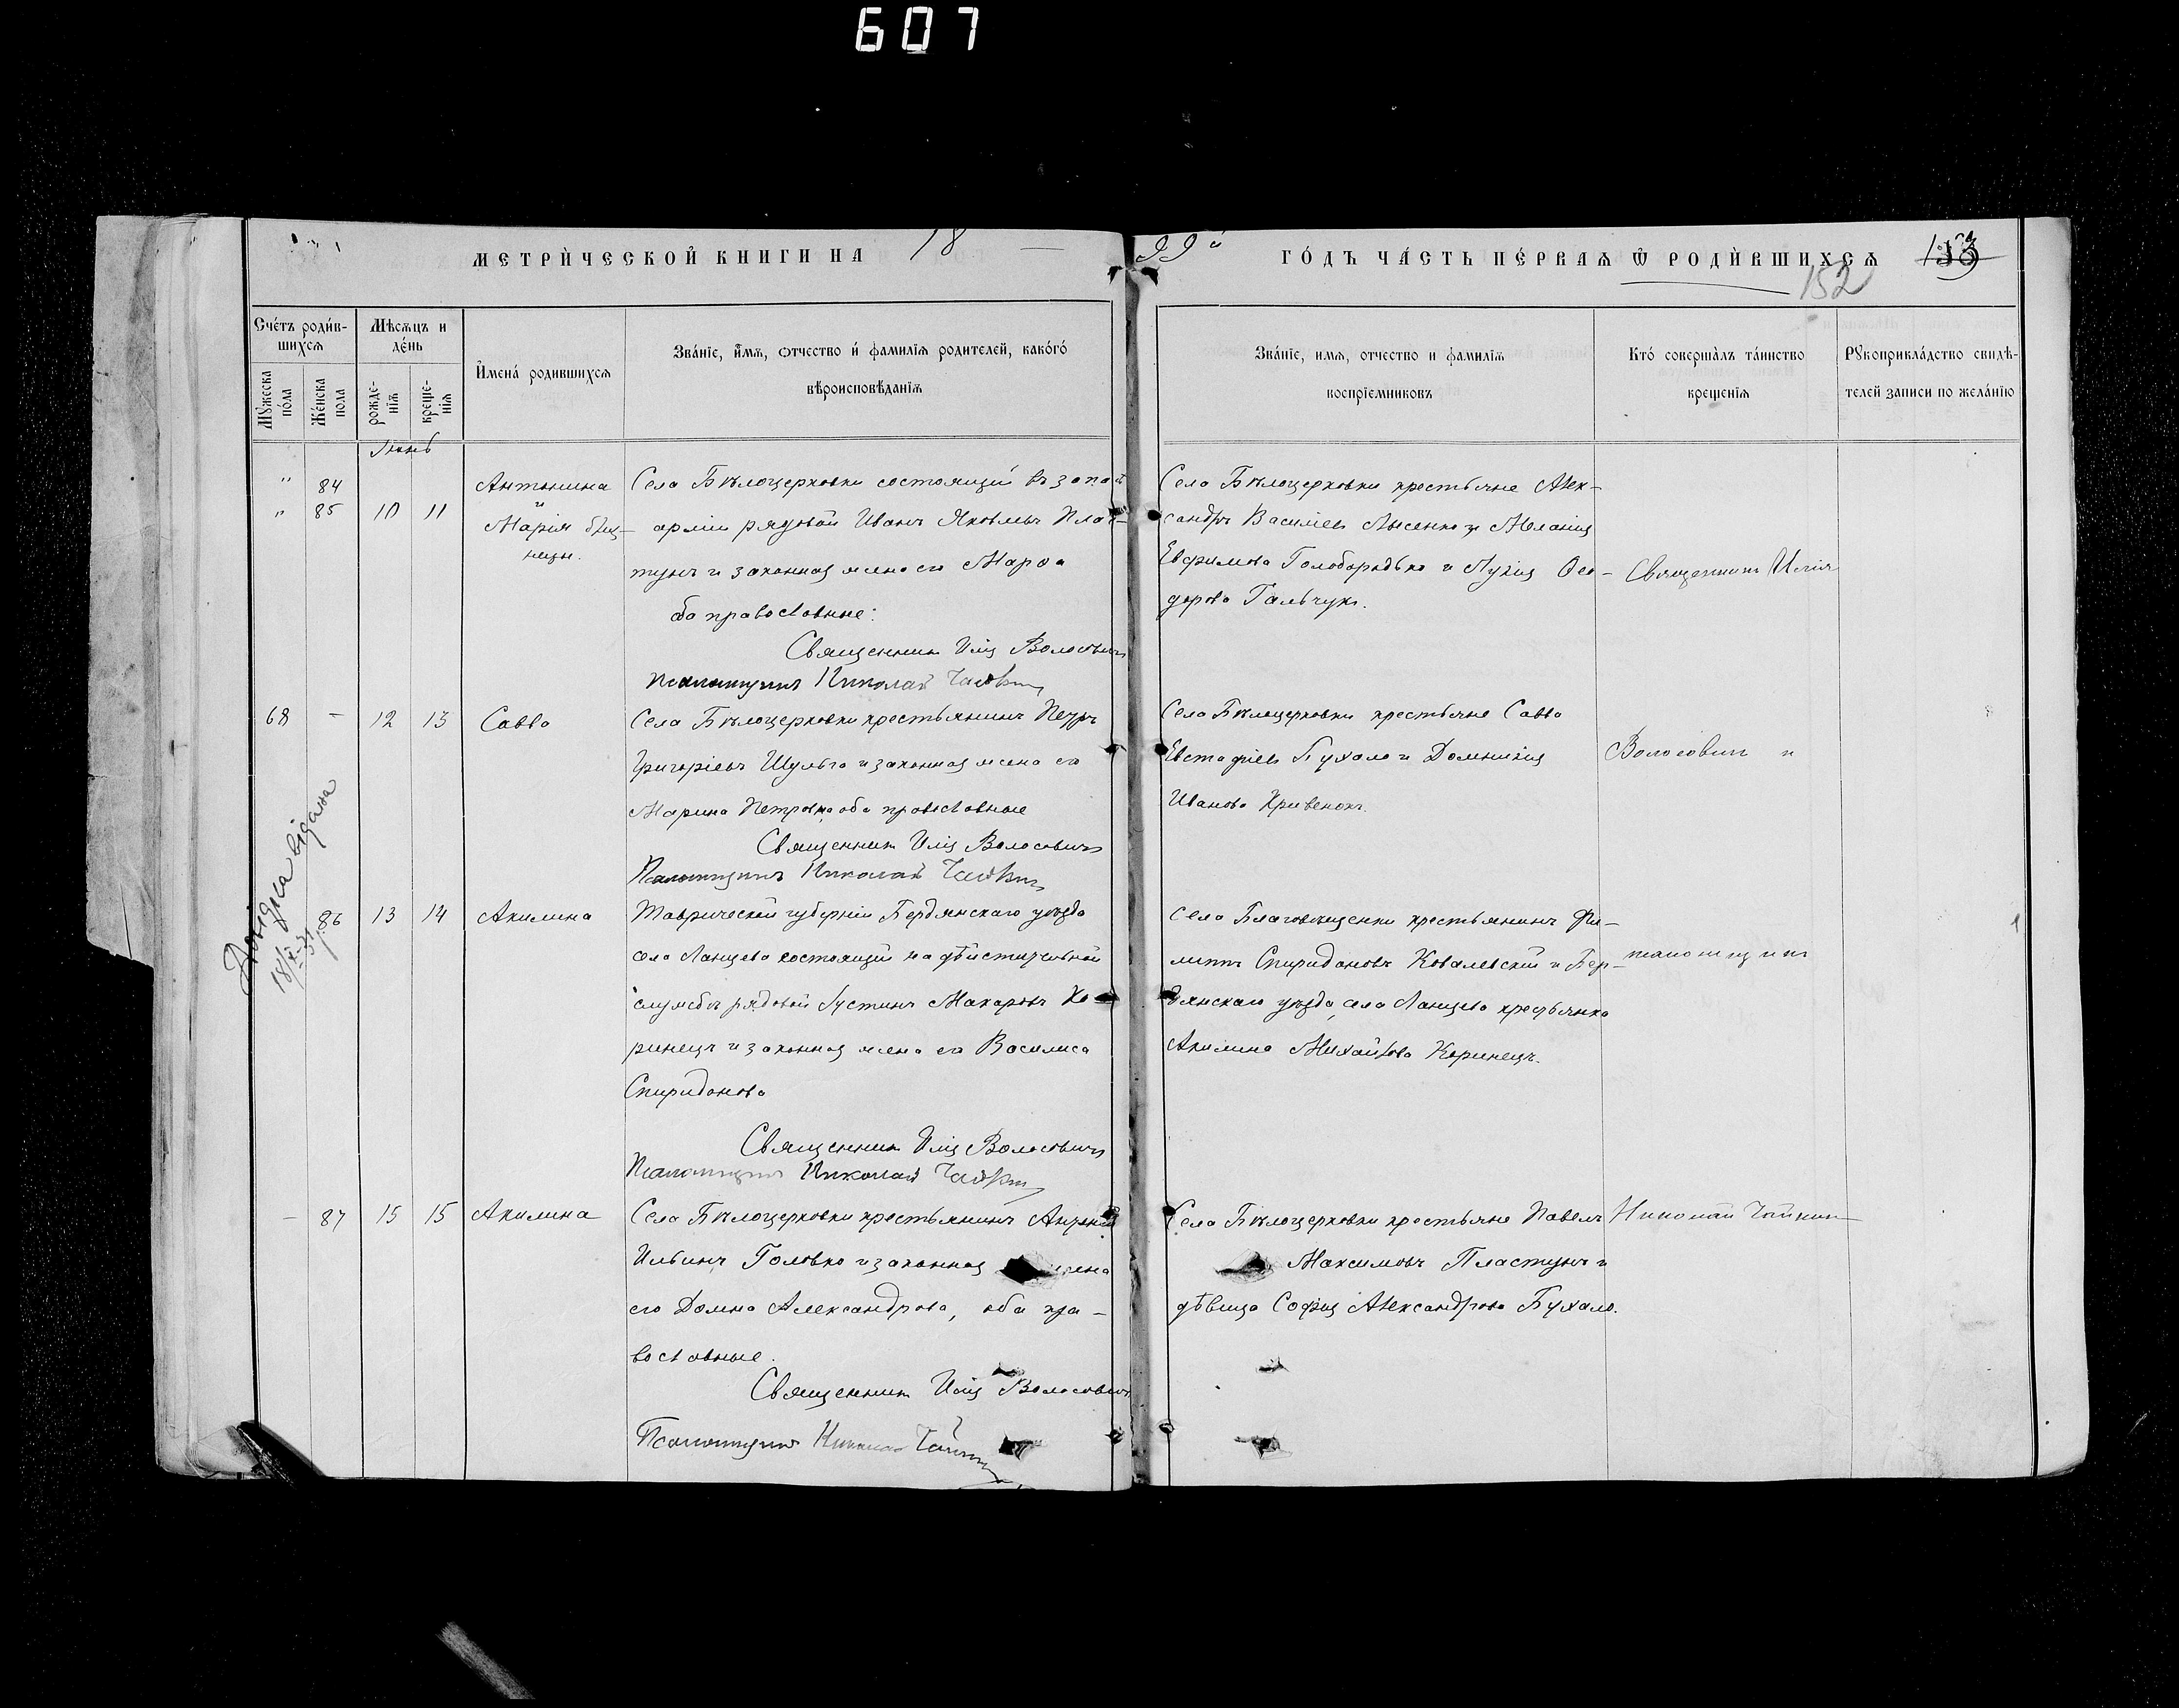 607
МЕТРИ́ЧЕСКОЙ КНИГИ НА 18
99й ГО́ДЪ ЧА́СТЬ ПЕ́РВАѦ Ѿ РОДИ́ВШИХСѦ
152
Сче́тъ роди́вшихсѧ
Мꙋ́жеска по́ла
Же́нска пола
Мѣ́сѧцъ и де́нь
рожде-нїѧ
креще-нїѧ
И҆мена́ родившихсѧ
Зва́нїе, и҆́мѧ, ѻтчество и҆ фамилїѧ родителей, како́гѡ́
вѣроисповѣ́данїѧ
Зва́нїе, имѧ, отчество и фамилїѧ
воспрїемниковъ
Кто́ соверша́лъ та́инство
креще́нїѧ
Рꙋкоприкла́дство свидѣ-
телей записи по жела́нїю
Іюнь
" 84
" 85 10 11
Антонина
и
Марія близ-
нецы.
Села Бѣлоцерковки состоящій въ запас
арміи рядовой Иванъ Яковлевъ Плас-
тунъ и законная жена его Марѳа
оба православные:
Священникъ Илія Волосовичъ
Псаломщикъ Николай Чайкин
Села Бѣлоцерковки крестьяне Алек-
сандръ Василіев Лысенко и Меланія
Евфимова Голобородько и Лукія Ѳео-
дорова Гальчукъ.
Священникъ Илія
68 — 12 13 Савва
Села Бѣлоцерковки крестьянинъ Петръ
Григоріевъ Шульга и законная жена его
Марина Петрова оба православные
Священникъ Илія Волосовичъ
Псаломщикъ Николай Чайкин
Села Бѣлоцерковки крестьяне Савва
Евстафіевъ Бухало и Домникія
Иванова Кривенокъ.
Волосовичъ и
Довідка видана
18/X-51 р.
86 13 14 Акилина
Таврической губерніи Бердянскаго уѣзда
села Ланцева состоящій на дѣйствительной
службѣ рядовой Іустинъ Макаровъ Ко-
ринецъ и законная жена его Василиса
Спиридонова
Священникъ Илія Волосовичъ
Псаломщикъ Николай Чайкин
Села Благовѣщенки крестьянинъ Фи-
липпъ Спиридоновъ Ковалевскій и Бер-
дянскаго уѣзда, села Ланцева крестьянка
Акилина Михайлова Коринецъ.
псаломщикъ
— 87 15 15 Акилина
Села Бѣлоцерковки крестьянинъ Андрей
Ильинъ Головко и законная жена
его Домна Александрова, оба пра-
вославные.
Священникъ Илія Волосовичъ
Псаломщикъ Николай Чайкин
Села Бѣлоцерковки крестьяне Павелъ
Максимовъ Пластунъ и
дѣвица Софія Александрова Бухало.
Николай Чайкинъ